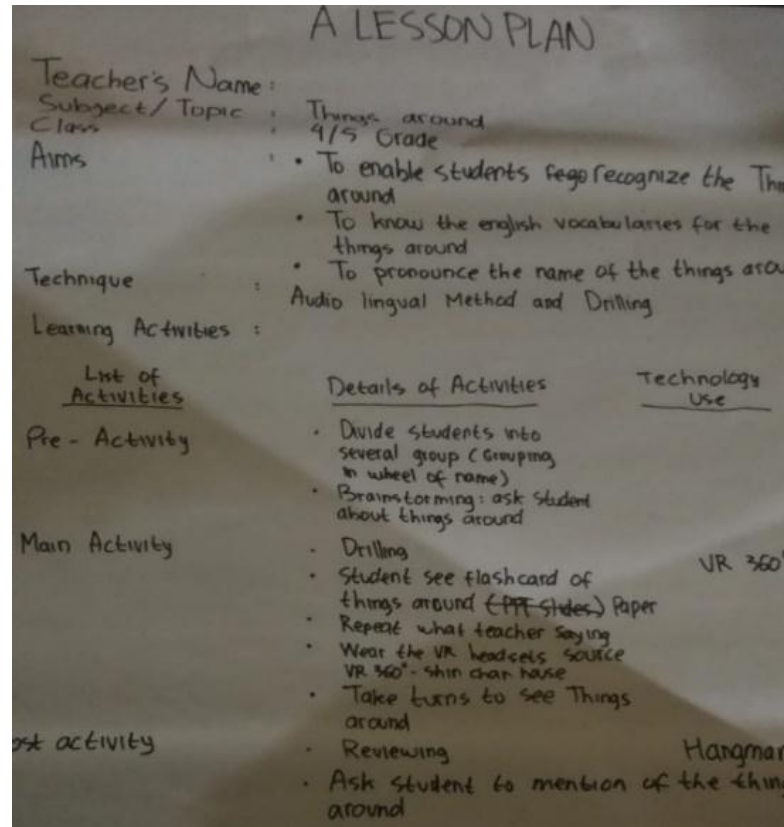 A LESSON PLAN
Teacher's Name :
Subject/Topic : Things around
Class : 4/5 Grade
Aims : • To enable students recognize the
around
• To know the english vocabularies for the
things around
• To pronounce the name of the things
Technique : Audio lingual Method and Drilling
Learning Activities :
List of Activities
Details of Activities
Technology Use
Pre - Activity
• Divide students into
several group (Grouping
in wheel of name)
• Brainstorming : ask student
about things around
Main Activity
• Drilling
VR 360°
• Student see flashcard of
things around (PPT Slides) Paper
• Repeat what teacher saying
• Wear the VR headsets source
VR 360° - shin chan house
• Take turns to see Things
around
activity
• Reviewing
• Ask student to mention of the
around